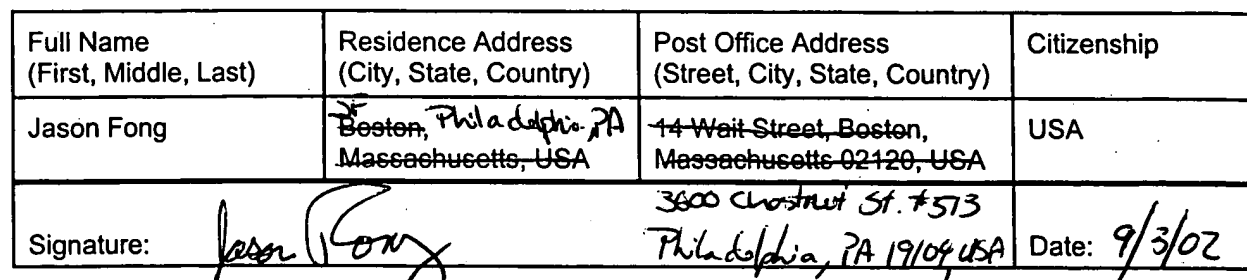 Full Name
(First, Middle, Last)
Residence Address
(City, State, Country)
Post Office Address
(Street, City, State, Country)
Citizenship
Jason Fong
Boston, Philadelphia, PA
Massachusetts, USA
14 Wait Street, Boston,
Massachusetts 02120, USA
USA
3600 Chestnut St. #513
Philadelphia, PA 19104 USA
Signature: Jason Fong
Date: 9/3/02